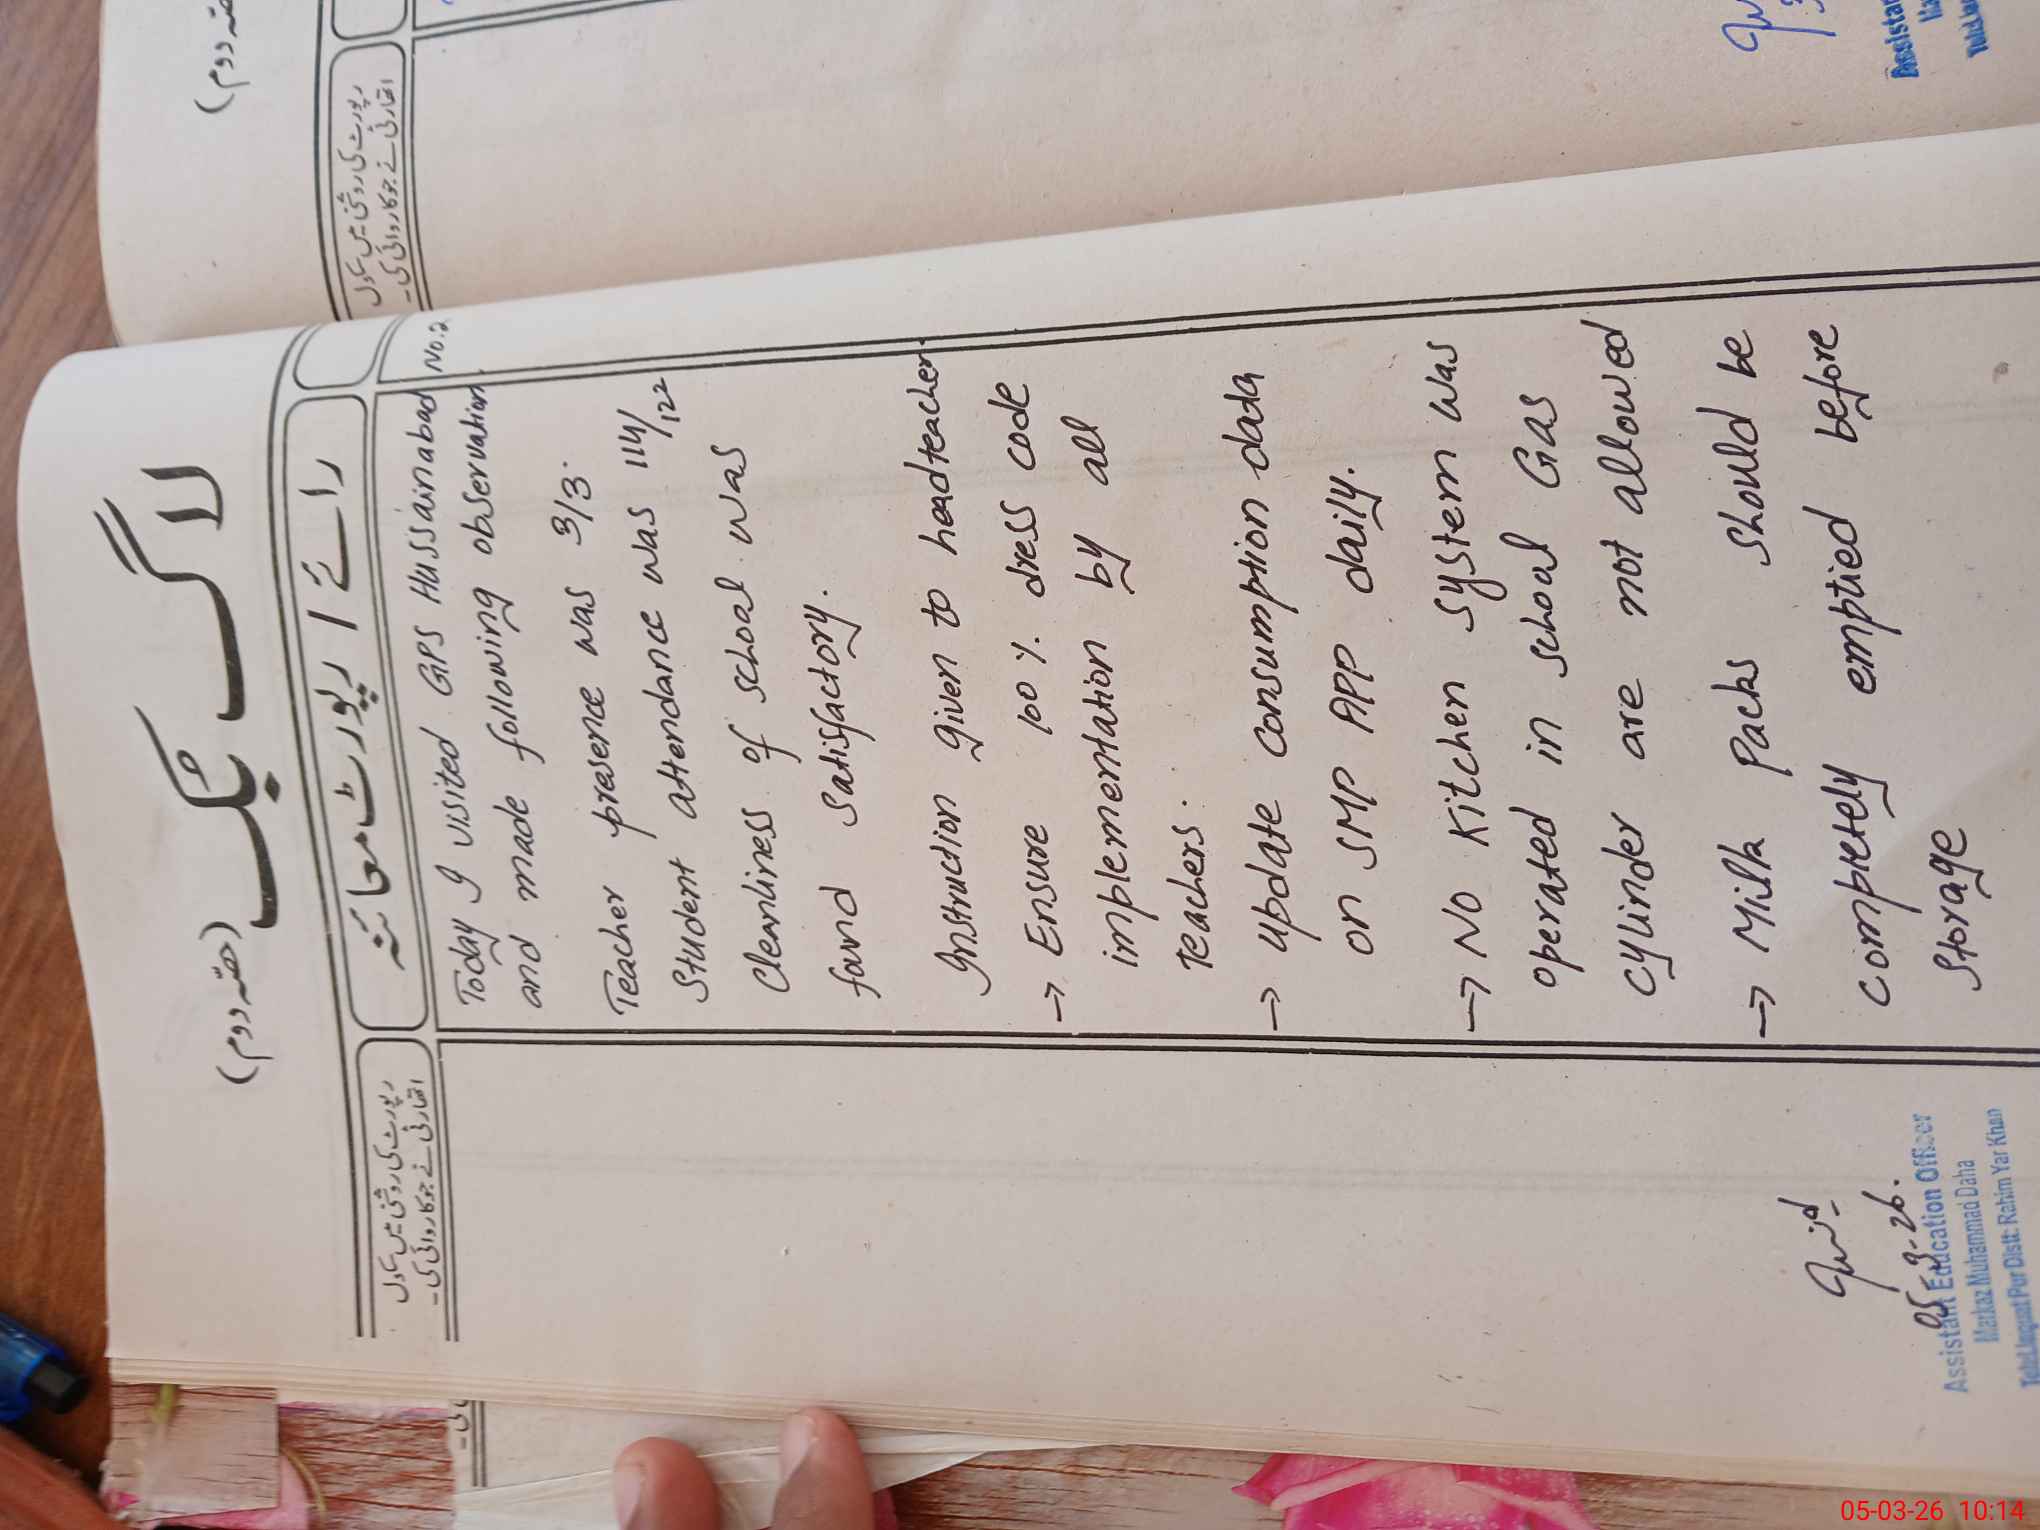 لاگ بک
(حصہ دوم)
رائے / رپورٹ معائنہ
رپورٹ کی روشنی میں سکول
اتھارٹی نے جو کاروائی کی۔
No.2
Today I visited GPS Hussainabad
and made following observation
Teacher presence was 3/3.
Student attendance was 114/122
Cleanliness of school was
found satisfactory.
Instruction given to headteacher.
→ Ensure 100% dress code
implementation by all
teachers.
→ update consumption data
on SMP APP daily.
→ No Kitchen system was
operated in school Gas
cylinder are not allowed
→ Milk Packs should be
completely emptied before
storage
05-3-26.
Assistant Education Officer
Markaz Muhammad Daha
Teh: Liaquat Pur Distt: Rahim Yar Khan
حصہ دوم)
رپورٹ کی روشنی میں سکول
اتھارٹی نے جو کاروائی کی۔
05-03-26 10:14